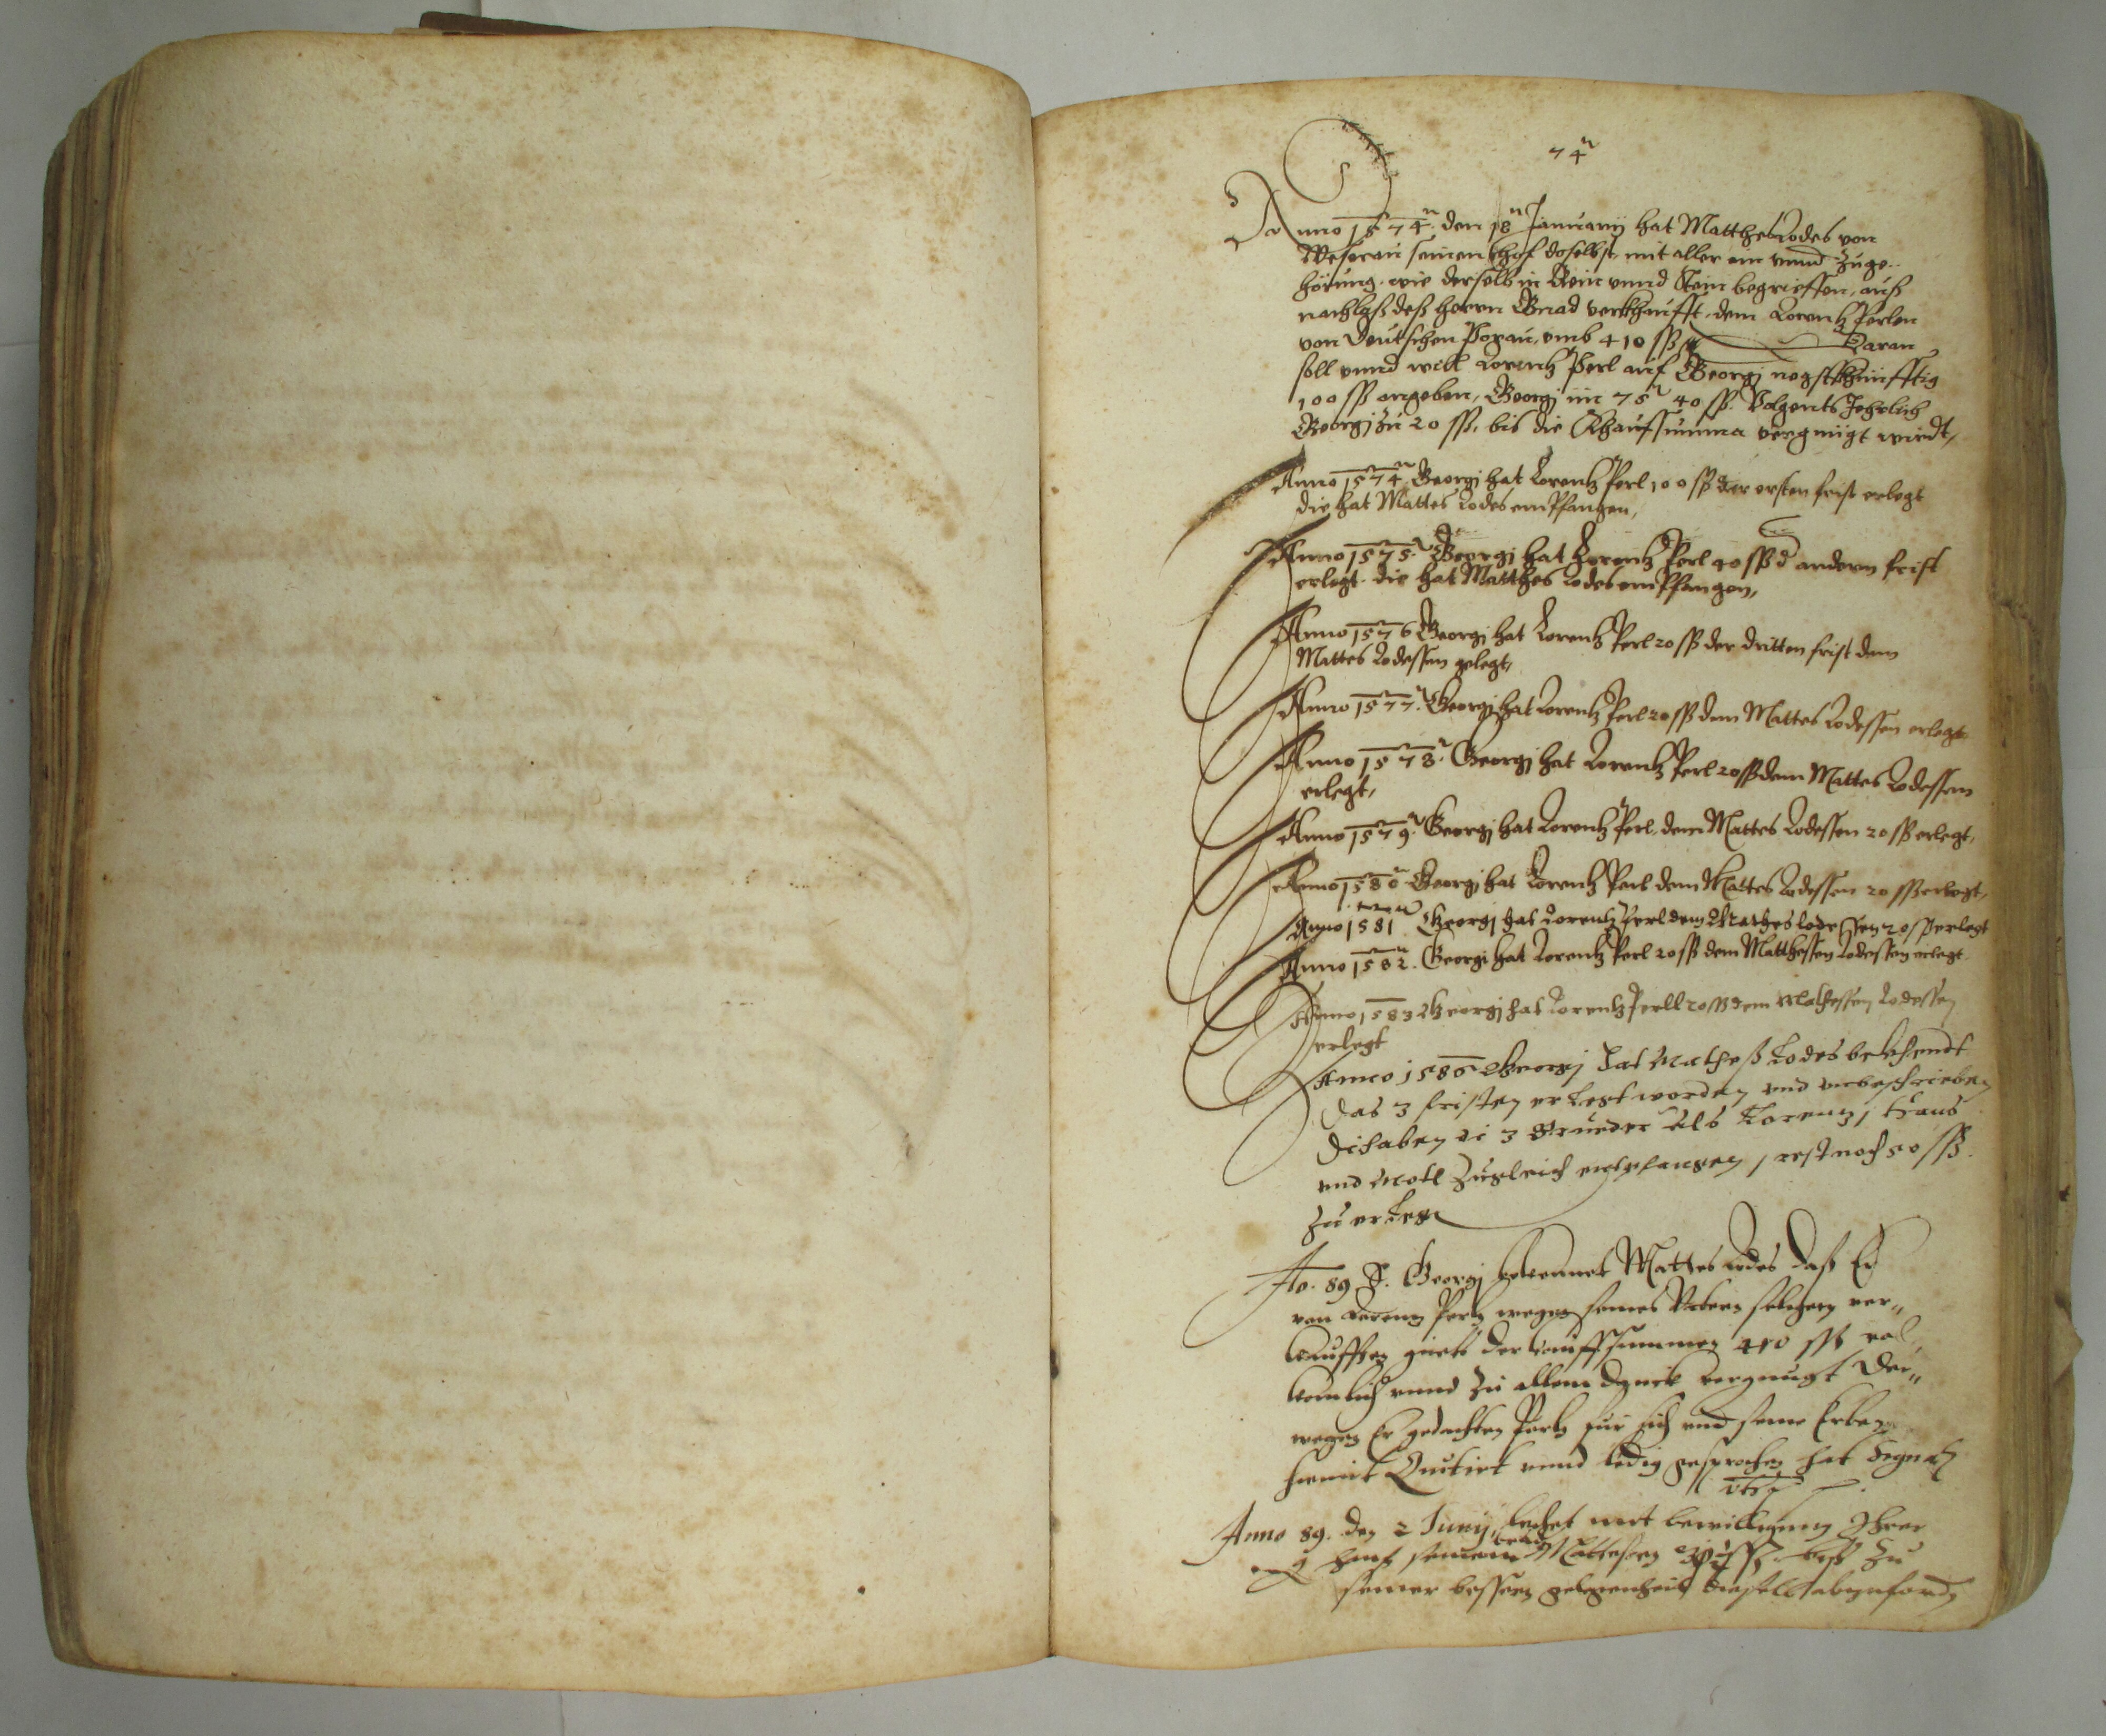 74
Anno 1574 den 18 Januarij hat Matthes Lodes von
Weseraü seinen hof doselbst, mit aller ein vnnd Zuge-
hörung, wie derselb in Rein vnnd Stein begrieffen, auß
nachlaß deß herrn Gnad verkhaufft, dem Lorentz Perlen
von Deutschen Poraü, vmb 410 ß Daran
soll vnnd will Lorentz Perl auf Georgj negstkhünfftig
100 ß angeben, Georgj im 75 40 ß. Volgents Jehrlich
Georgj zu 20 ß, bis die Khaufsumma vergnügt wirdt,
Anno 1574 Georgj hat Lorentz Perl 100 ß der ersten frist erlegt
die hat Mattes Lodes empfangen,
Anno 1575 Georgj hat Lorentz Perl 40 ß d andern frist
erlegt. die hat Matthes Lodes empfangen,
Anno 1576 Georgj hat Lorentz Perl 20 ß der dritten frist dem
Mattes Lodessen gelegt,
Anno 1577. Georgj hat Lorentz Perl 20 ß dem Mattes Lodessen erlegt
Anno 1578. Georgj hat Lorentz Perl 20 ß dem Mattes Lodessen
erlegt,
Anno 1579. Georgj hat Lorentz Perl, dem Mattes Lodessen 20 ß erlegt,
Anno 1580 Georgj hat Lorentz Perl dem Mattes Lodessen 20 ß erlegt,
Anno 1581 Georgj hat Lorentz Perl dem Mathes lodessen 20 ß erlegt
Anno 1582. Georgi hat Lorentz Perl 20 ß dem Matthessen Lodessen erlegt
Anno 1583 Georgj hat Lorentz Perll 20 ß dem Mathessen Lodessen
erlegt
Anno 1586 Georgj hat Matheß Lodes bekhendt
das 3 fristen erlegt worden vnd
di haben di 3 Brueder als Lorentz, Hans
vnd Motl Zugleich entpfangen, rest noch 50 ß.
zu erlegn
Ao. 89 S. Georgj bekennet Mattes Lodes daß Er
von Lorentz Perln wegen seines Vatern seligen ver-
kaufften guets der kauffsummen 410 ß vol
komlich vnnd zu allem danck vergnugt Der-
wegen Er gedachten Perln fur sich vnd seine Erben
hiemit Quitirt vnnd ledig gesprochen hat Signatum
vts
Anno 89. den 2 Junij, mit bewilligung Ihrer
G hans seinem Mattesen biß zu
seiner bessern gelegenheit